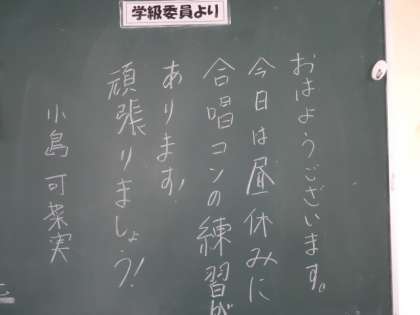 学級委員より
おはようございます。
今日は昼休みに
合唱コンの練習が
あります!
頑張りましょう!
小島 可菜実